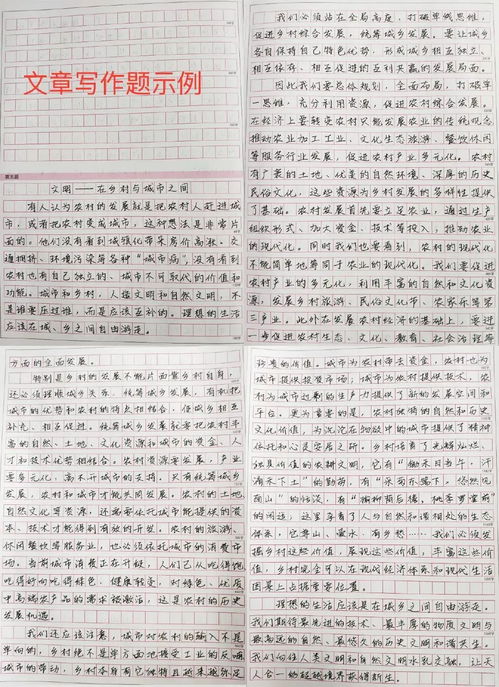 文章写作题示例
第五题
文明——在乡村与城市之间
有人认为农村的发展就是把农村人赶进城
市，或者把农村变成城市，这种想法是非常片
面的。他们没有看到城镇化带来房价高涨、交
通拥挤、环境污染等各种“城市病”，没有看到
农村也有自己独立的、城市不可取代的价值和
功能。城市和乡村，人造文明和自然文明，不
是谁要压过谁，而是应该互补的。理想的生活
应该在城、乡之间自由游走。
我们必须站在全局高度，打破单线思维，
促进乡村综合发展，统筹城乡发展。要让城乡
各自保持自己特色优势，形成城乡相互独立、
相互依存、相互促进的互利共赢的发展局面。
因此我们要总体规划，全面布局，打破单
一思维，充分利用资源，促进农村综合发展。
在经济上要转变农村只能发展农业的传统观念
推动农业加工工业、文化生态旅游、餐饮休闲
等服务行业发展，促进农村产业多元化。农村
有广袤的土地、优美的自然环境、深厚的历史
民俗文化，这些资源为乡村发展的多样性提供
了基础。农村发展首先要立足农业，通过生产
组织形式、加大资金、技术等投入，推动农业
的现代化。同时我们也要看到，农村的现代化
不能简单地等同于农业的现代化。我们要促进
农村产业的多元化，利用丰富的自然和文化资
源，发展乡村旅游、民俗文化节、农家乐等第
三产业。此外在发展农村经济的基础上，要进
一步促进农村生态、文化、教育、社会治理等
方面的全面发展。
特别是乡村的发展不能片面靠乡村自身，
还必须理顺城乡关系，统筹城乡发展，有机把
城市的优势和农村的特点相结合，使城乡相互
补充、相互促进。统筹城乡发展就要把农村丰
富的自然、土地、文化资源和城市的资金、人
才和技术优势相结合。农村资源要发展，产业
要多元化，离不开城市的支持。只有统筹城乡
发展，农村和城市才能共同发展。农村的土地
自然文化等资源，还需要依托城市能提供的资
本、技术才能得到有效的开发。农村的旅游、
休闲餐饮等服务业，也必须依托城市的消费市
场。当前城市消费正在升级，人们已从吃得饱
吃得好向吃得绿色、健康转变，对绿色、优质
中高端农产品的需求被激活，这是农村的历史
发展机遇。
我们还应该注意，城市对农村的输入不是
单向的，乡村绝不是单方面地接受工业的反哺
城市的带动，乡村本身有它独特且越来越弥足
珍贵的价值。城市为农村带去资金，农村也为
城市提供投资市场；城市为农村提供技术，农
村为城市过剩的生产力提供了新的发展空间和
平台。更为重要的是，农村独特的自然和历史
文化价值，为沉沦在物欲中的城市提供了精神
依托和心灵安居之所。乡村培育了光辉灿烂、
独具价值的农耕文明，它有“锄禾日当午，汗
滴禾下土”的勤劳，有“采菊东篱下，悠然见
南山”的恬淡，有“榆柳荫后檐，桃李罗堂前”
的闲适，这里孕育了人与自然和谐相处的生态
体系，它靠山、亲水、有乡愁……我们必须发
掘乡村这些价值，展现这些价值，丰富这些价
值，乡村完全可以在现代经济体系和现代生活
图景上占据重要位置。
理想的生活应该是在城乡之间自由游走。
我们期待最先进的技术、最丰厚的物质文明与
最高远的自然、最悠久的历史文明和谐共生。
我们向往人类文明和自然文明水乳交融，让天
人合一的超越境界获得新生。